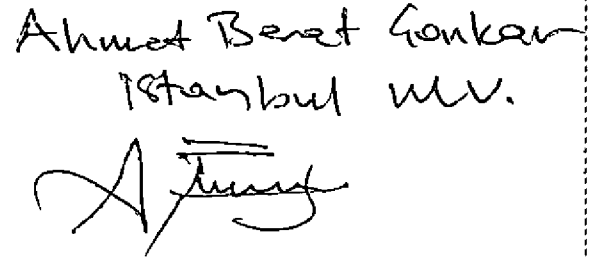 Ahmet Berat Çonkar
İstanbul M.V.